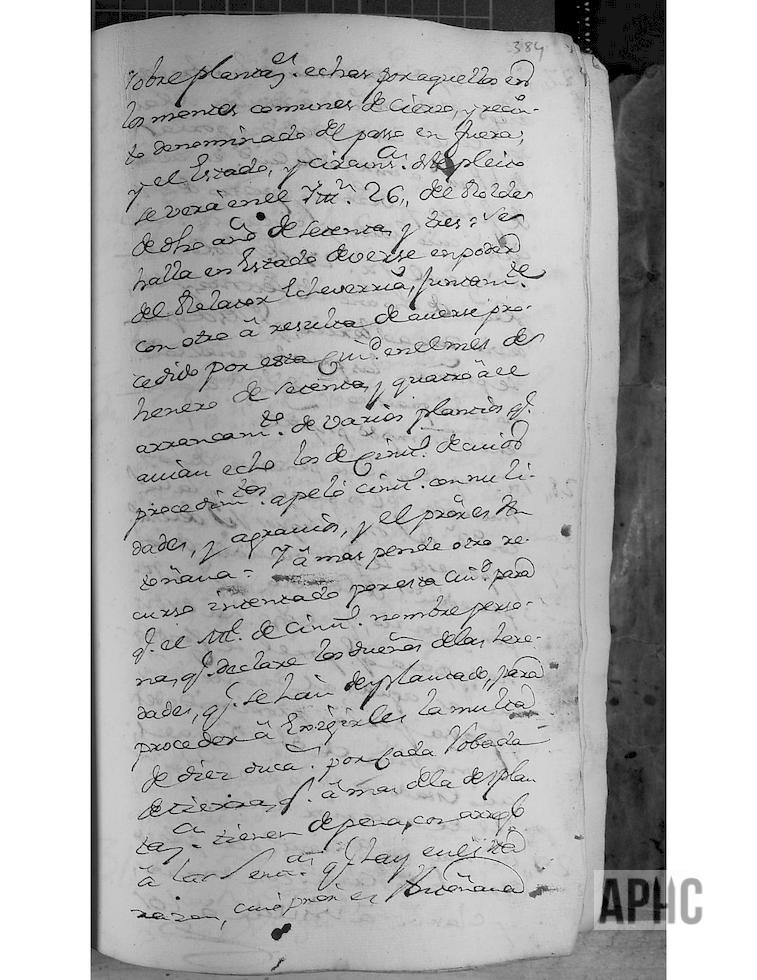 384
sobre plantacs. echas por aquellos en
los montes comunes de Cierzo, y recin-
to denominado del paso en fuera;
y el Estado, y circuns.as de este pleito
se vera en el Inv.º 26,, del Rolde
de dho año de setenta, y tres: se
halla en Estado de verse en poder
del Relator Echeverria, juntam.te
con otro â resulta de averse pro-
cedido por esta Ciu.d en el mes de
henero de setenta, y quatro â el
arrancam.to de varios plantios q.e
avian echo los de Cinu.º de cuios
procedim.tos apeló Cinu.º con nuli-
dades, y agravios, y el pror es An
toñana = Y â mas pende otro re-
curso intentado por esta Ciu.d para
q.e el Al.e de Cinu.º nombre perso-
nas, q.e declare los dueños de las here-
dades, q.e se han desplantado, para
proceder â Exigirles la multa
de diez duca.s por cada Robada
de tierra, q.e â mas de la desplan
tac.on tienen de pena, con arreglo
â las Sena.s q.e hay en esta
razon, cuio pror es Antoñana
APHC